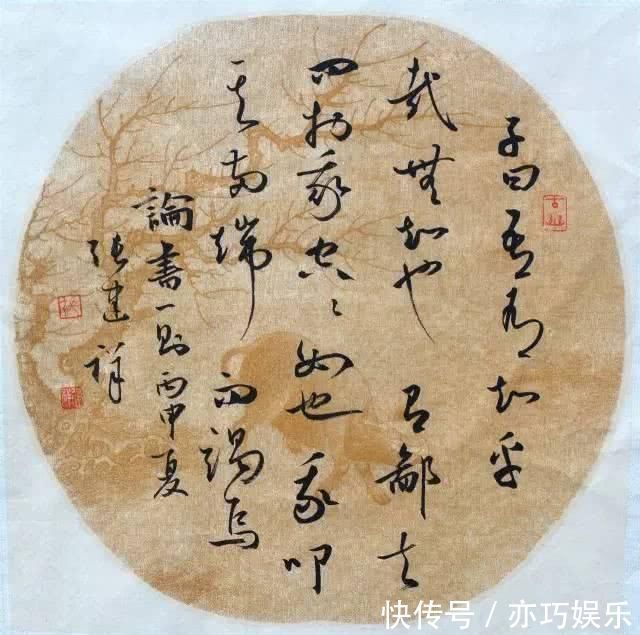 子曰吾有知乎
哉無知也有鄙夫
問於我空〻如也我叩
其兩端而竭焉
論書一則丙申夏
張建祥
快传号 / 亦巧娱乐